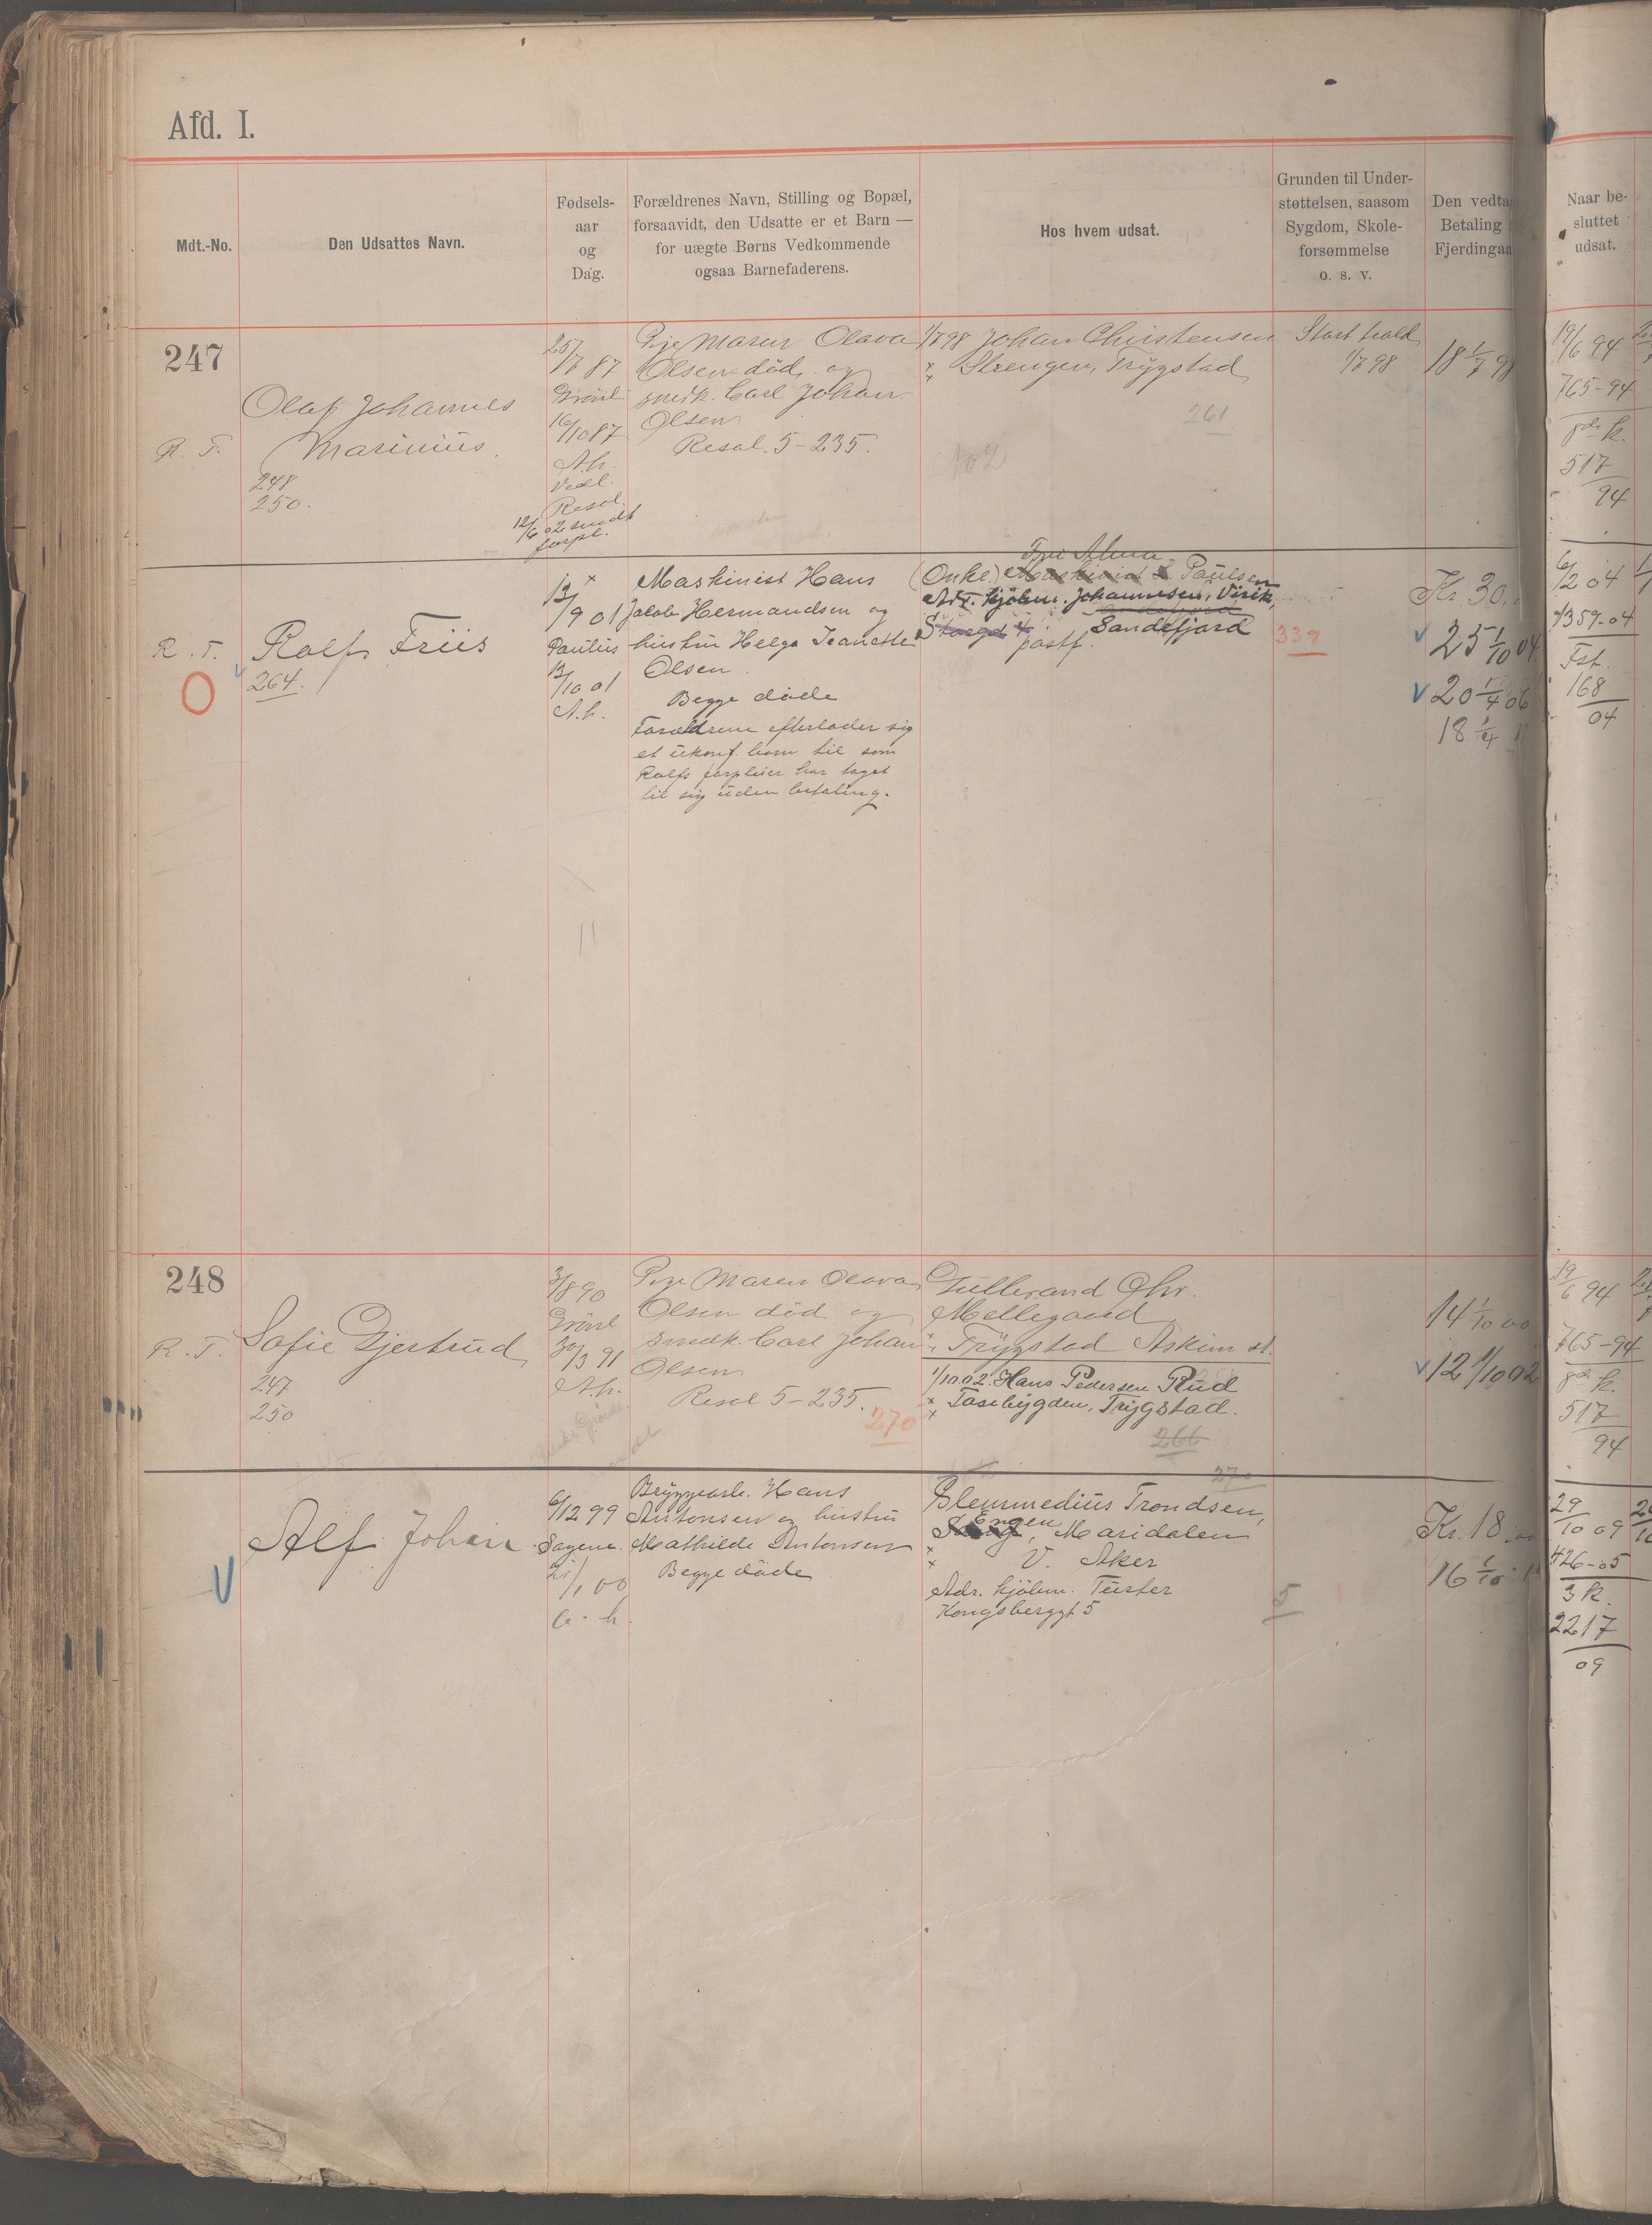 Afd. I.
Mdt.-No.
Den Udsattes Navn.
Fødsels-
aar
og
Dag.
Forældrenes Navn, Stilling og Bopæl,
forsaavidt, den Udsatte er et Barn —
for uægte Børns Vedkommende
ogsaa Barnefaderens.
Hos hvem udsat.
Grunden til Under-
støttelsen, saasom
Sygdom, Skole-
forsømmelse
o. s. v.
Den vedta
Betaling
Fjerdingaa
Naar be-
sluttet
udsat.
247
R. T.
Olaf Johannes
Marinius
248
250.
25/7 87
Grönl.
16/10 87
A.h.
Resol.
12/6 02 sendt
forpl.
Pige Maren Olava
Olsen død og
smedk. Carl Johan
Olsen
Resol. 5-235.
1/7 98 Johan Christensen
Strengen, Trygstad
261
1/7 98
18 1/7 98
19/6 94
765-94
517
94
R. T.
Rolf Friis
264.
13/9 01
Paulus
13/10 01
A.h.
Maskinist Hans
Jakob Hermandsen og
hustru Helga Jeanette
Olsen
Begge døde
Forældrene efterlader sig
et ukonf. barn til som
Rolfs forpleier har taget
til sig uden betaling.
(Onkel) Maskinist Paulsen
Adr. kjöbm. Johannesen, Virik,
Sandefjord
Storgd 4
postf.
339
Kr. 30.
25 1/10 04
20 1/4 06
18 1/4
6/2 04
1359-04
Fst.
168
04
248
R. T.
Sofie Gjertrud
247
250
3/8 90
Grönl
30/3 91
A.h.
Pige Maren Olava
Olsen død og
smedk. Carl Johan
Olsen
Resol 5-235.
270
Gullerand Chr.
Mellegaard
Trygstad Askim st.
1/10 02. Hans Pedersen Rud
Tosebygden, Trygstad.
266
14 1/10 00
12 1/10 02
19/6 94
765-94
517
94
Alf Johan
6/12 99
Sagene
21/1 00
Bryggearb. Hans
Antonsen og hustru
Mathilde Antonsen
Begge døde
270
Blemmedius Trondsen,
Engen
Maridalen
V. Aker
Adr. kjöbm. Furter
Kongsberggt 5
5
Kr. 18.00
16 1/10
29/10 09
426-05
3 k.
2217
09